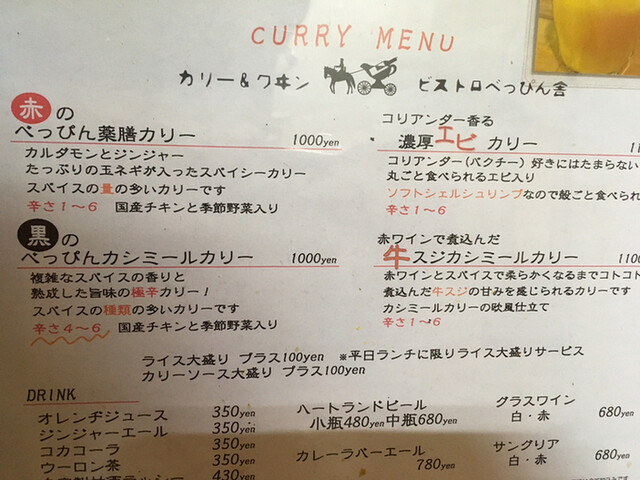 CURRY MENU
カリー＆ワヰン ビストロべっぴん舎
赤の
べっぴん薬膳カリー 1000yen
カルダモンとジンジャー
たっぷりの玉ネギが入ったスパイシーカリー
スパイスの量の多いカリーです
辛さ1〜6 国産チキンと季節野菜入り
黒の
べっぴんカシミールカリー 1000yen
複雑なスパイスの香りと
熟成した旨味の極辛カリー！
スパイスの種類の多いカリーです
辛さ4〜6 国産チキンと季節野菜入り
コリアンダー香る
濃厚エビカリー
コリアンダー(パクチー)好きにはたまらない
丸ごと食べられるエビ入り
ソフトシェルシュリンプなので殻ごと食べられ
辛さ1〜6
赤ワインで煮込んだ
牛スジカシミールカリー 1100
赤ワインとスパイスで柔らかくなるまでコトコト
煮込んだ牛スジの甘みを感じられるカリーです
カシミールカリーの欧風仕立て
辛さ1〜6
ライス大盛り プラス100yen ※平日ランチに限りライス大盛りサービス
カリーソース大盛り プラス100yen
DRINK
オレンヂジュース 350yen
ジンジャーエール 350yen
コカコーラ 350yen
ウーロン茶 350yen
430yen
ハートランドビール
小瓶480yen 中瓶680yen
カレーラバーエール
780yen
グラスワイン
白・赤 680yen
サングリア
白・赤 680yen